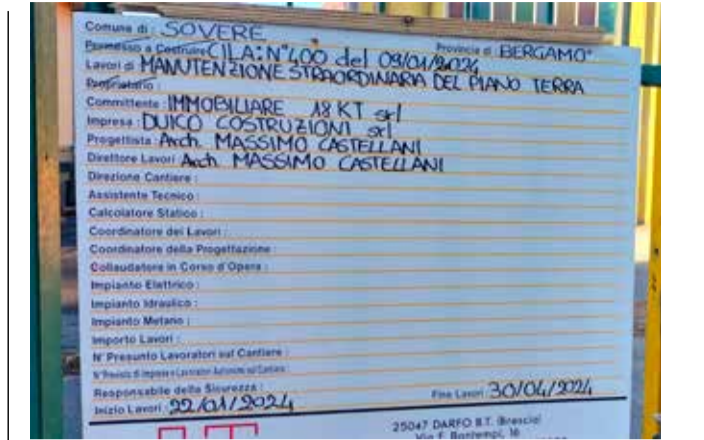 Comune di: SOVERE Provincia di BERGAMO
Permesso a Costruire CILA: N°400 del 09/01/2024
Lavori di MANUTENZIONE STRAORDINARIA DEL PIANO TERRA
Proprietario:
Committente: IMMOBILIARE 18 KT srl
Impresa: DUICO COSTRUZIONI srl
Progettista: Arch. MASSIMO CASTELLANI
Direttore Lavori Arch. MASSIMO CASTELLANI
Direzione Cantiere:
Assistente Tecnico:
Calcolatore Statico:
Coordinatore dei Lavori:
Coordinatore della Progettazione:
Collaudatore in Corso d'Opera:
Impianto Elettrico:
Impianto Idraulico:
Impianto Metano:
Importo Lavori:
N° Presunto Lavoratori sul Cantiere:
N° Previsto di Imprese e Lavoratori Autonomi sul Cantiere:
Responsabile della Sicurezza:
Inizio Lavori: 22/01/2024 Fine Lavori: 30/04/2024
25047 DARFO B.T. (Brescia)
Via F. Bontempi, 16